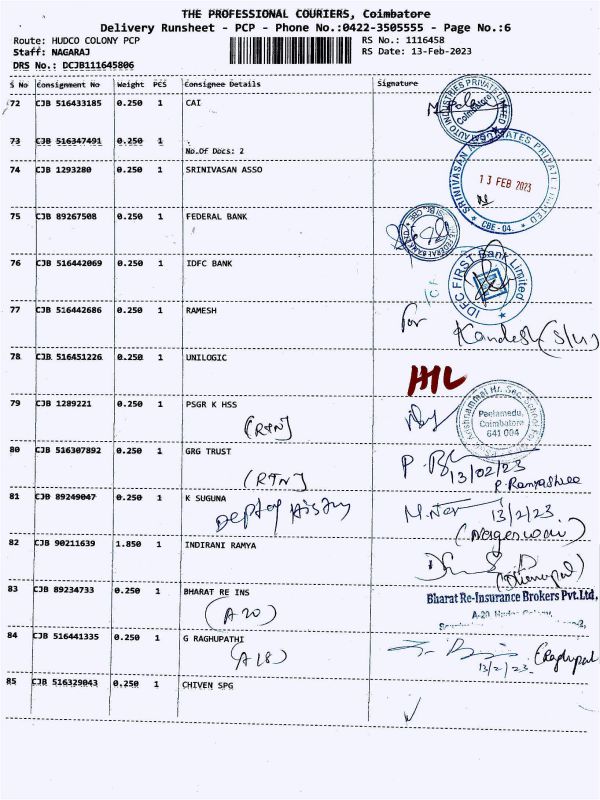 THE PROFESSIONAL COURIERS, Coimbatore
Delivery Runsheet - PCP - Phone No.:0422-3505555 - Page No.:6
Route: HUDCO COLONY PCP RS No.: 1116458
Staff: NAGARAJ RS Date: 13-Feb-2023
DRS No.: DCJB111645806
S No Consignment No Weight PCS Consignee Details Signature
72 CJB 516433185 0.250 1 CAI
73 CJB 516347491 0.250 1
No.Of Docs: 2
74 CJB 1293280 0.250 1 SRINIVASAN ASSO
13 FEB 2023
CBE - 04.
75 CJB 89267508 0.250 1 FEDERAL BANK
76 CJB 516442069 0.250 1 IDFC BANK
IDFC FIRST Bank Limited
77 CJB 516442686 0.250 1 RAMESH
for
78 CJB 516451226 0.250 1 UNILOGIC
79 CJB 1289221 0.250 1 PSGR K HSS
Peelamedu,
Coimbatore
641 004
80 CJB 516307892 0.250 1 GRG TRUST
(RTN)
13/02/23
P. Ramyashree
81 CJB 89249047 0.250 1 K SUGUNA
Dept of History
13/2/23
(Nageswari)
82 CJB 90211639 1.850 1 INDIRANI RAMYA
(Dhanapal)
83 CJB 89234733 0.250 1 BHARAT RE INS
(A 20)
Bharat Re-Insurance Brokers Pvt.Ltd.,
84 CJB 516441335 0.250 1 G RAGHUPATHI
(A 18)
13/2/23
85 CJB 516329043 0.250 1 CHIVEN SPG